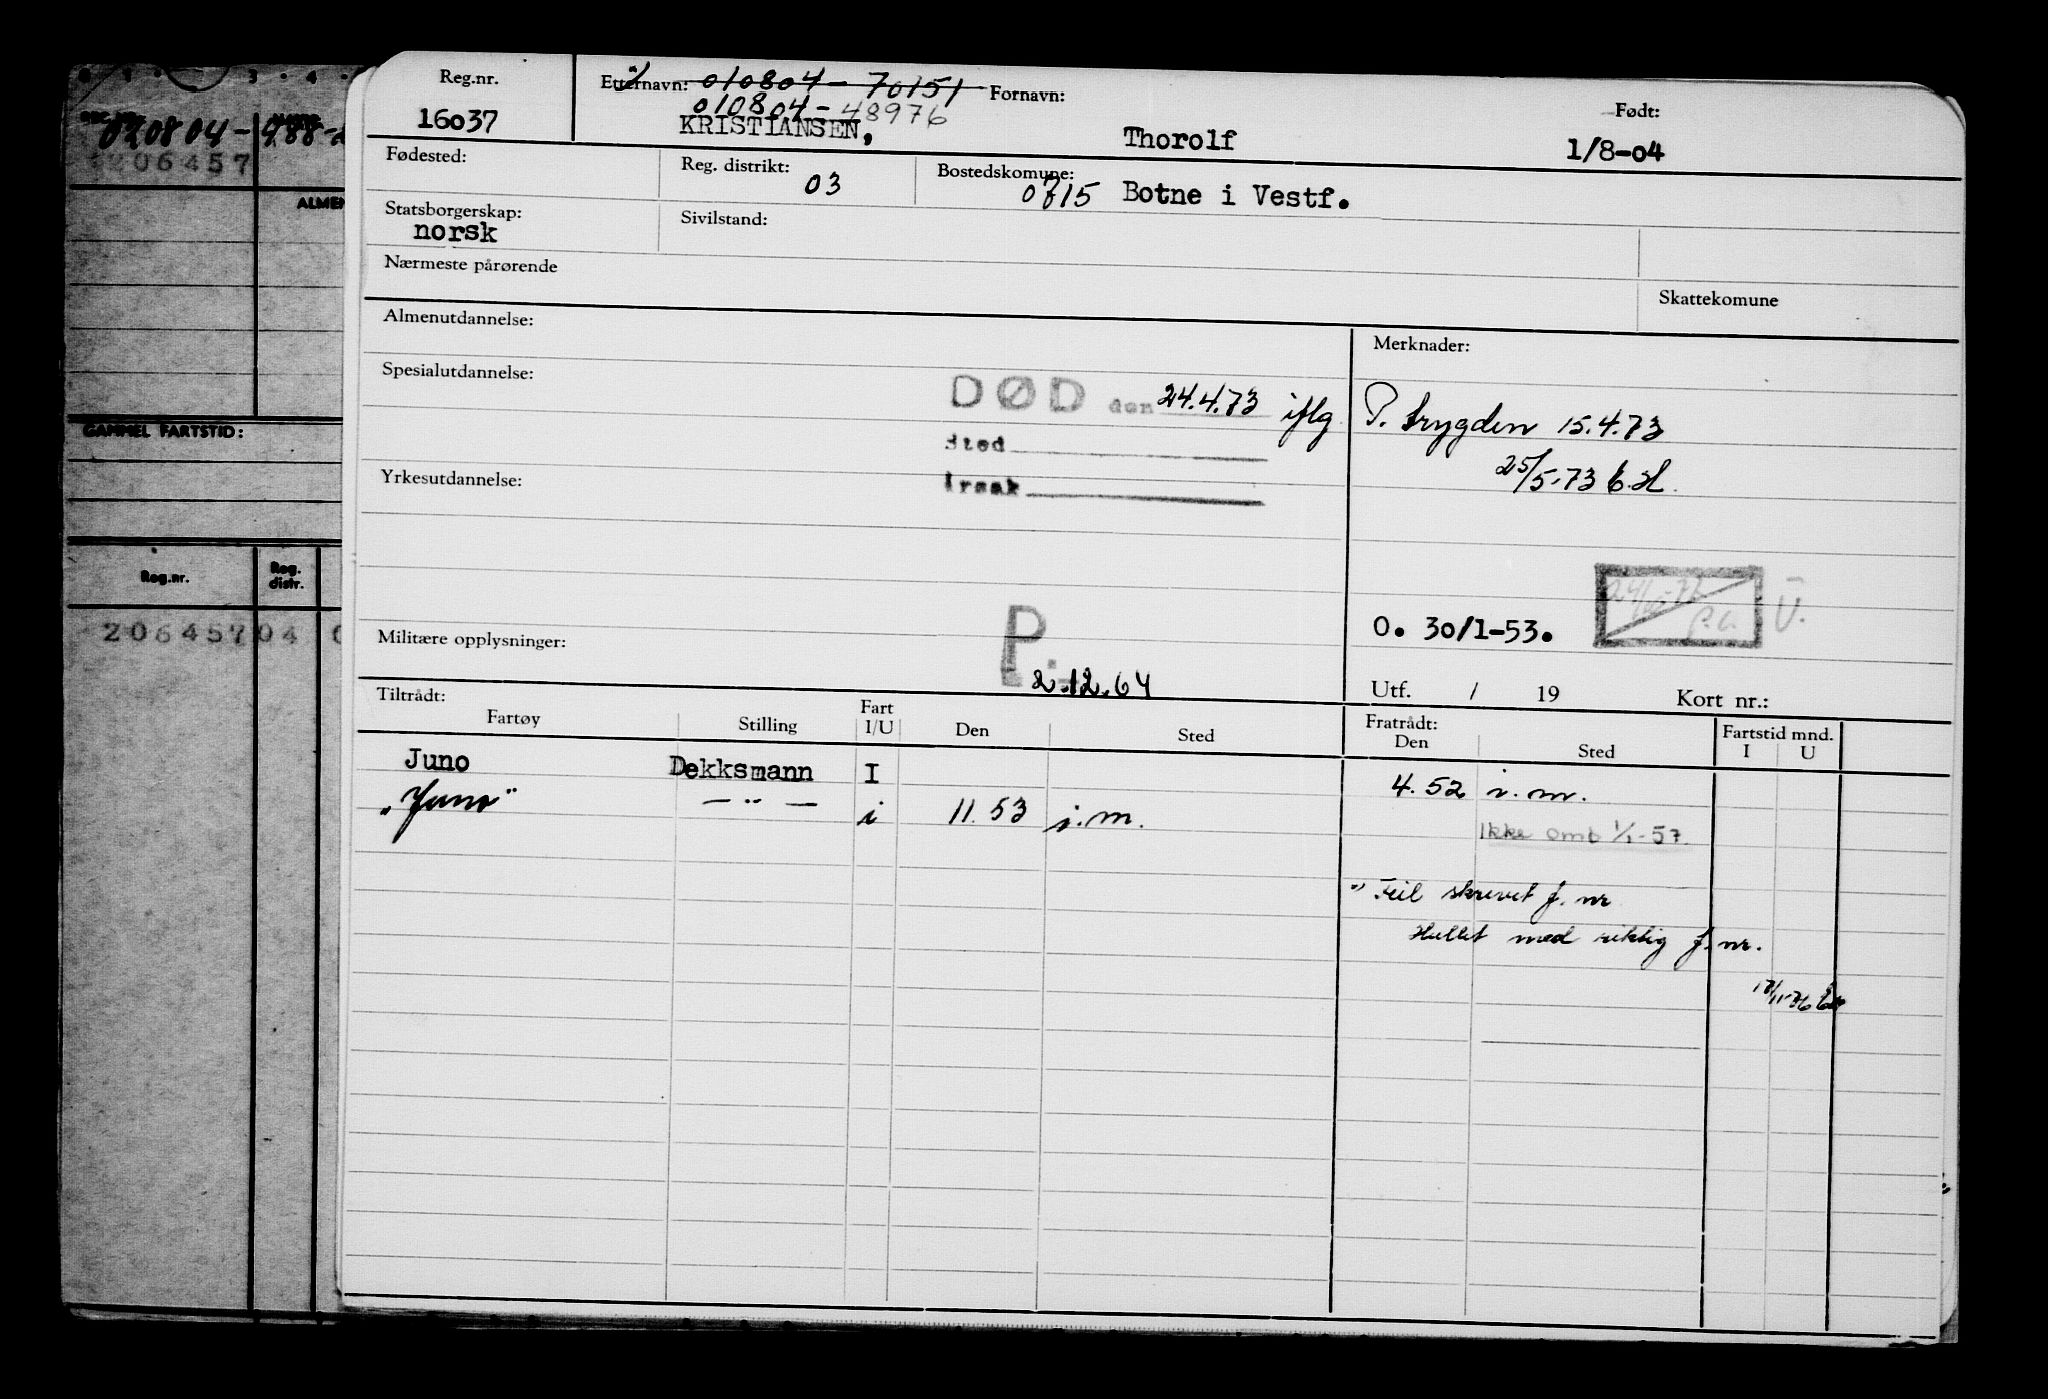 Reg.nr.
16037
Etternavn: 010804-70151
010804-48976
KRISTIANSEN,
Fornavn:
Thorolf
Født:
1/8-04
Fødested:
Reg. distrikt: 03
Bostedskomune:
0715 Botne i Vestf.
Statsborgerskap:
norsk
Sivilstand:
Nærmeste pårørende
Skattekomune
Almenutdannelse:
Merknader:
Spesialutdannelse:
DØD den 24.4.73 iflg P. trygden 15.4.73
Sted
25/5-73
Årsak
Yrkesutdannelse:
O. 30/1-53.
Ü.
Militære opplysninger:
P.
2.12.64
Utf. / 19 Kort nr.:
Tiltrådt:
Fartøy
Stilling
Fart
I/U
Den
Sted
Fratrådt:
Den
Sted
Fartstid mnd.
I U
Juno Dekksmann I 4.52 i.m.
"Juno" — " — i 11.53 i.m.
Ikke omb 1/1-57.
Feil skrevet f. nr
Hullet med riktig f. nr.
206457
ALMEN
GAMMEL FARTSTID:
Reg.nr.
Reg.
distr.
206457 04